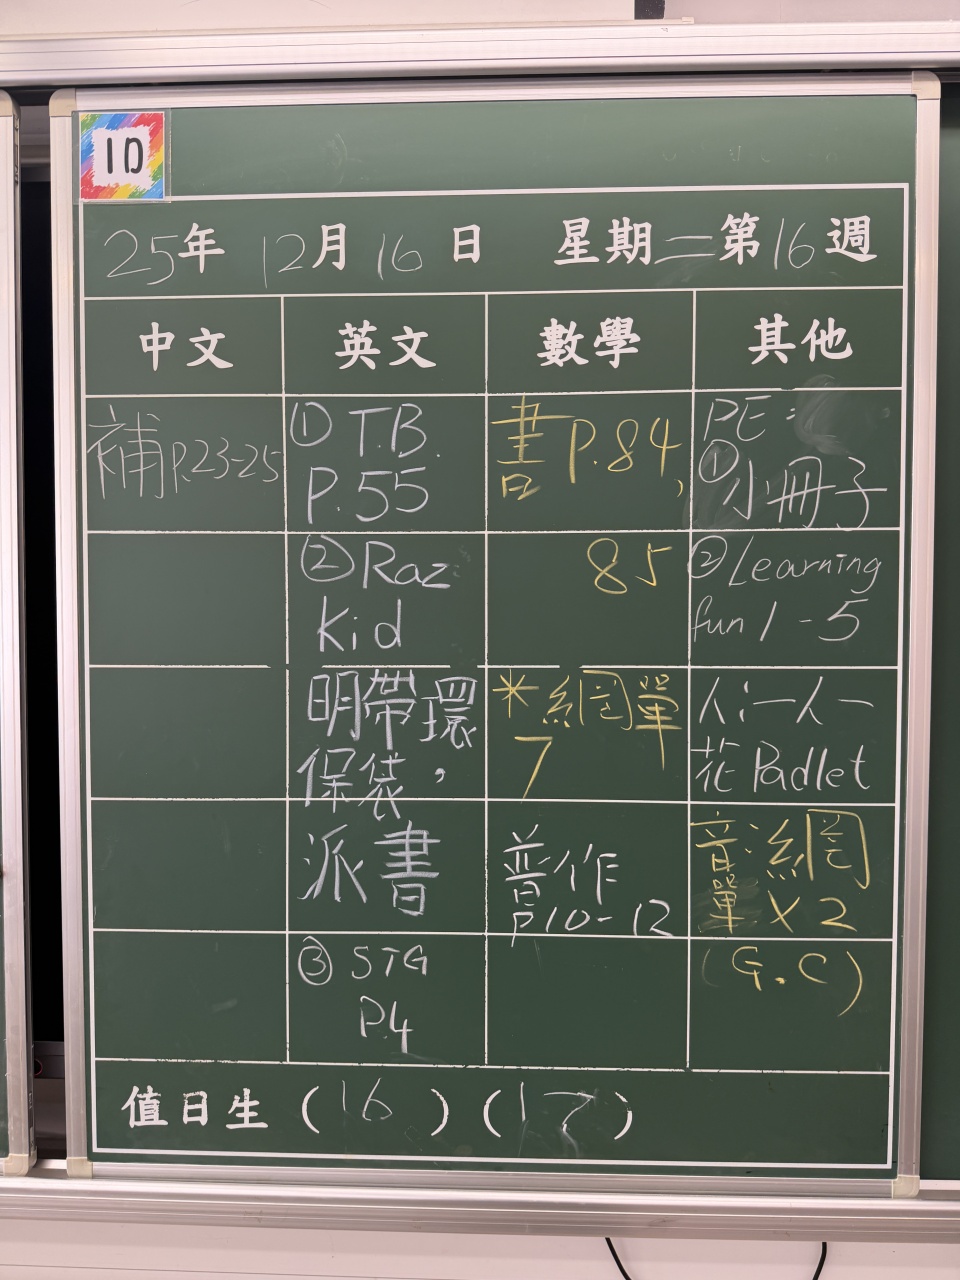 1D
25年 12月 16日 星期二第16週
中文 英文 數學 其他
補P.23-25
① T.B.
P.55
② Raz
Kid
明帶環
保袋，
派書
③ STG
P.4
書P.84,
85
*網單
7
普作
P10-12
PE:
①小冊子
②Learning
fun 1-5
人:一人一
花 Padlet
音:網
單 X 2
(G.C)
值日生 (16) (17)